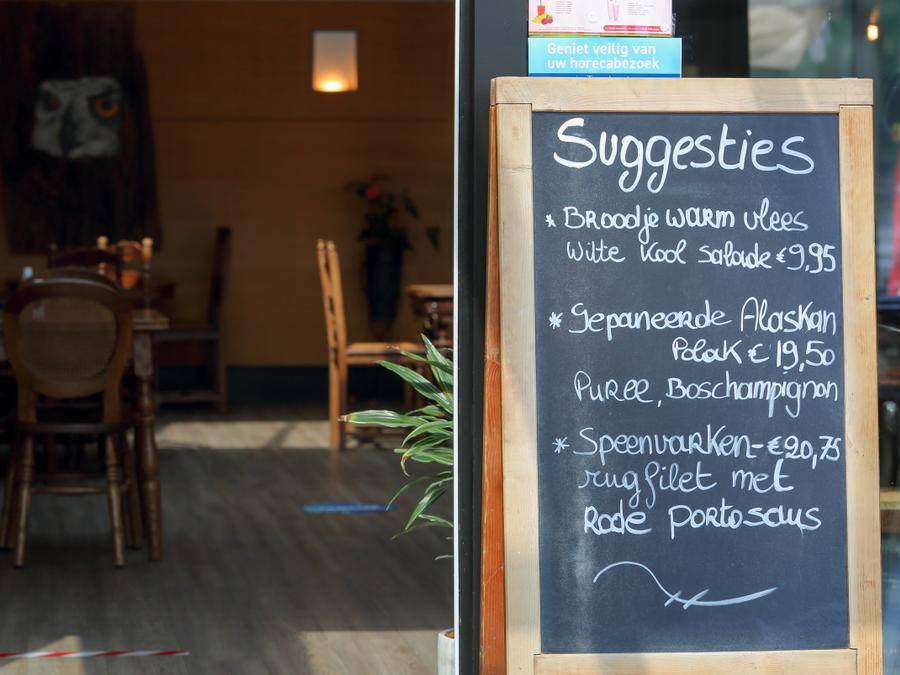 Geniet veilig van
uw horecabezoek
Suggesties
* Broodje warm vlees
Witte kool salade €9,95
* Gepaneerde Alaskan
Polak € 19,50
Puree, Boschampignon
* Speenvarken- €20,75
rugfilet met
Rode portosaus